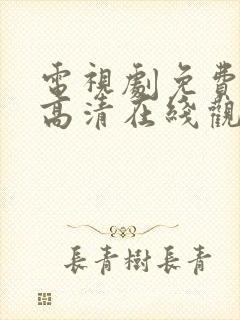 電視劇免費
高清在綫觀
長青樹長青